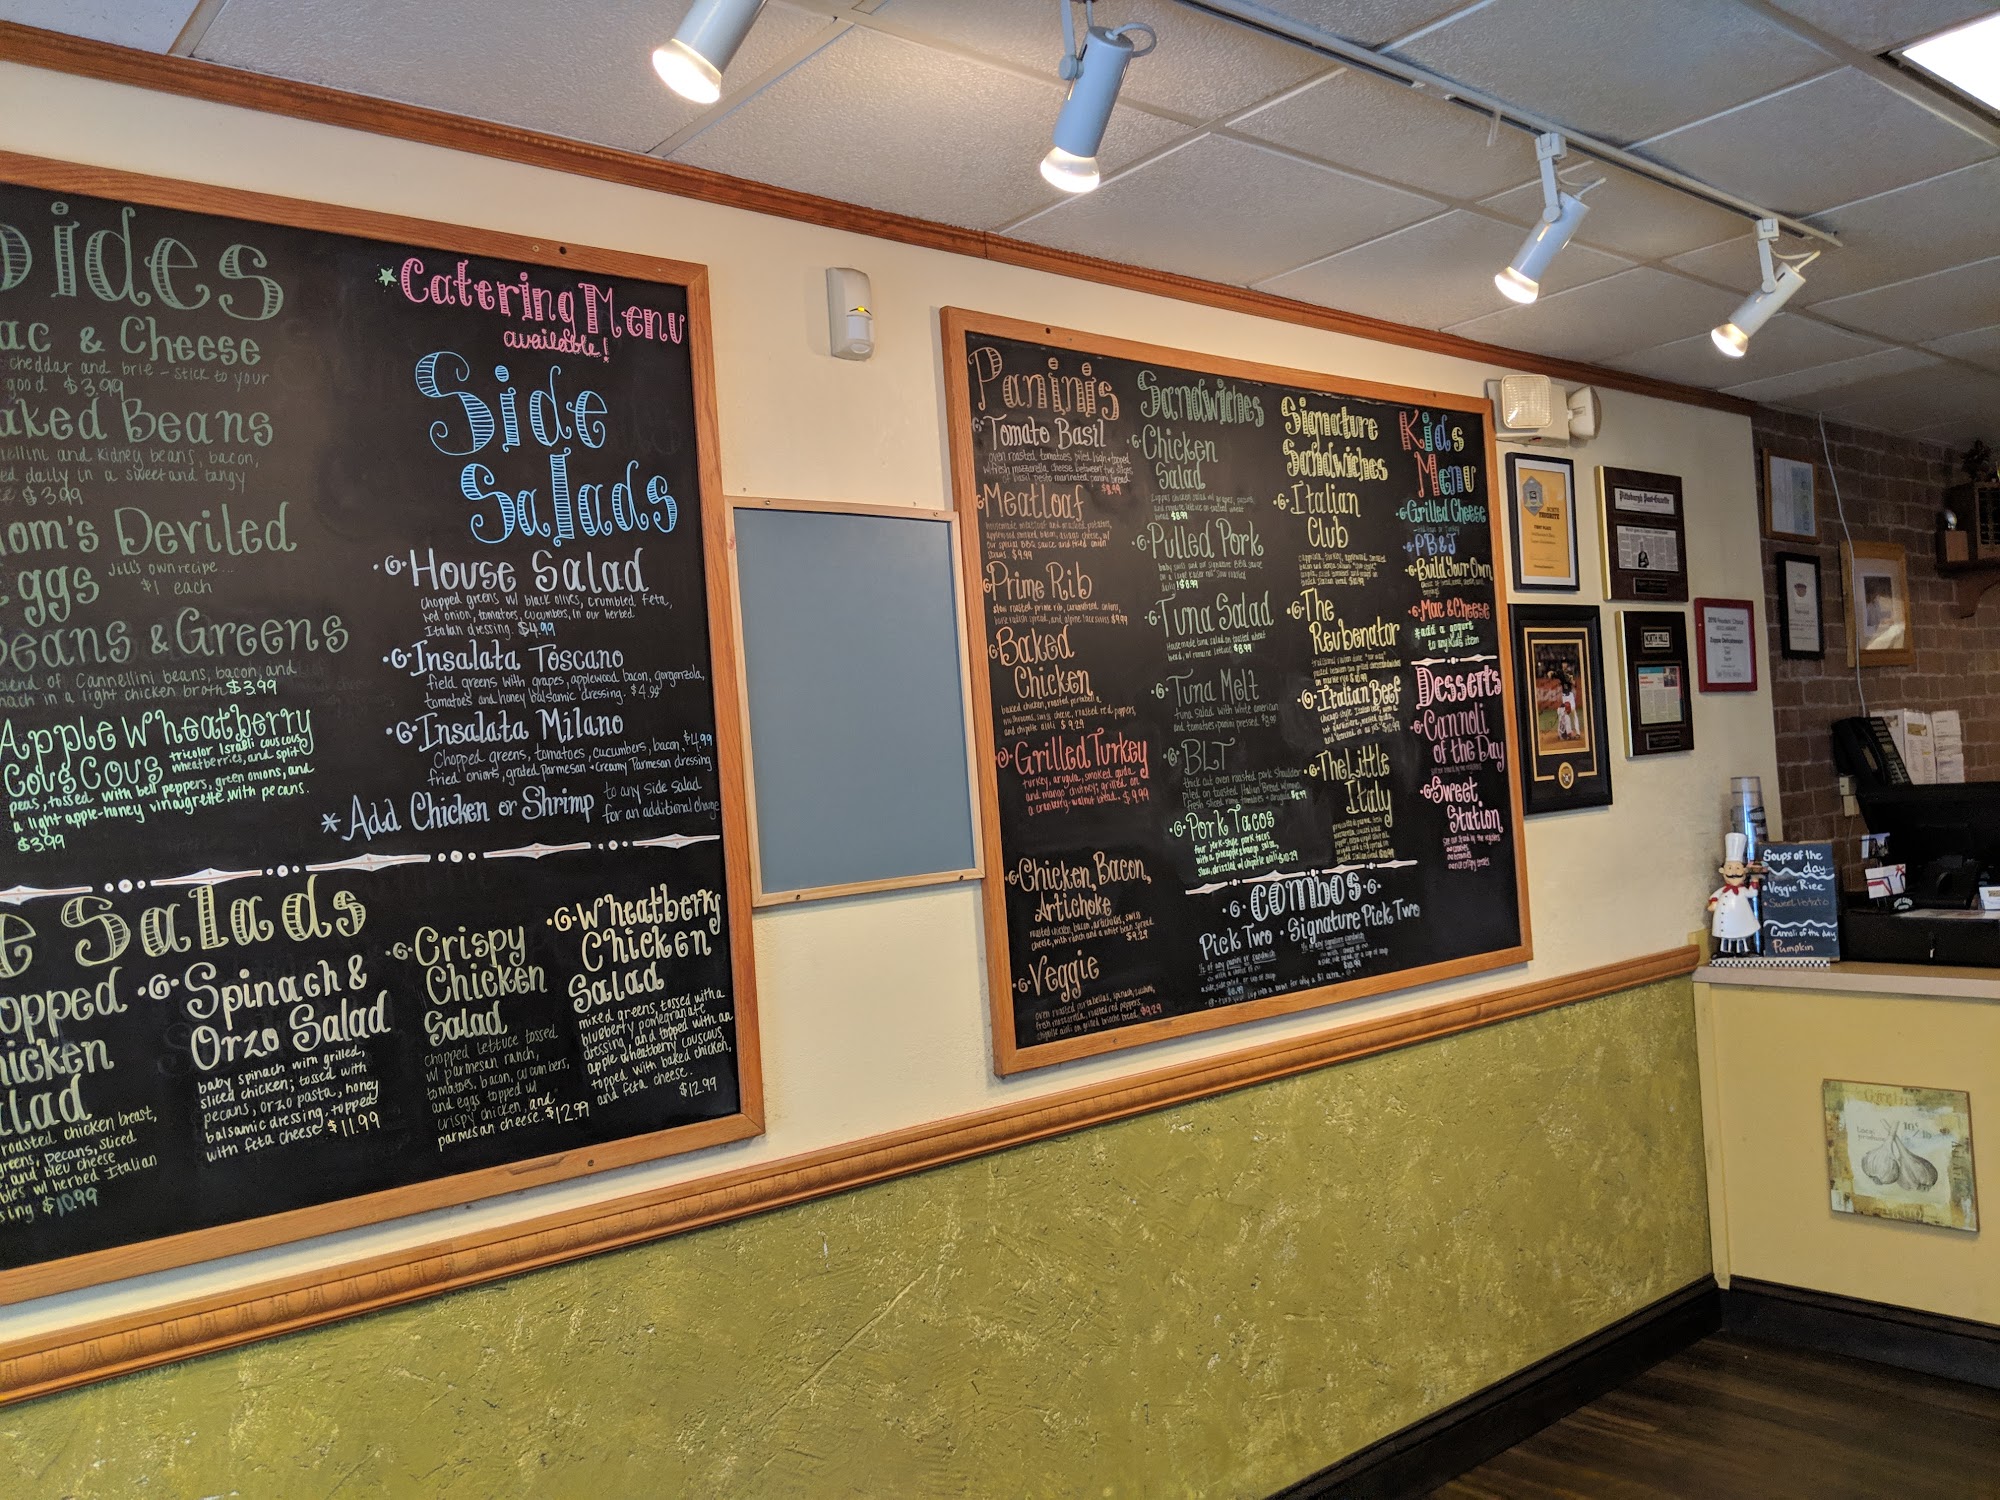 Sides
Mac & Cheese
cheddar and brie - stick to your
good $3.99
Baked Beans
and kidney beans, bacon,
daily in a sweet and tangy
$3.99
Mom's Deviled
Eggs Jill's own recipe...
$1 each
Beans & Greens
blend of Cannellini beans, bacon, and
in a light chicken broth $3.99
Apple Wheatberry
Cous Cous tricolor Israeli couscous,
wheatberries, and split
peas, tossed with bell peppers, green onions, and
a light apple-honey vinaigrette with pecans.
$3.99
Catering Menu
available!
Side
Salads
House Salad
chopped greens w/ black olives, crumbled feta,
red onion, tomatoes, cucumbers, in our herbed
Italian dressing. $4.99
Insalata Toscano
field greens with grapes, applewood bacon, gorgonzola,
tomatoes and honey balsamic dressing. $4.99
Insalata Milano
Chopped greens, tomatoes, cucumbers, bacon, $4.99
fried onions, grated Parmesan + Creamy Parmesan dressing
*Add Chicken or Shrimp to any side salad
for an additional charge
Salads
Chopped
Chicken
Salad
roasted chicken breast,
greens, pecans, sliced
and bleu cheese
w/ herbed Italian
$10.99
Spinach &
Orzo Salad
baby spinach with grilled,
sliced chicken; tossed with
pecans, orzo pasta, honey
balsamic dressing, topped
with feta cheese $11.99
Crispy
Chicken
Salad
chopped lettuce tossed
w/ parmesan ranch,
tomatoes, bacon, cucumbers,
and eggs topped w/
crispy chicken, and
parmesan cheese. $12.99
Wheatberry
Chicken
Salad
mixed greens, tossed with a
blueberry pomegranate
dressing, and topped with an
apple wheatberry couscous,
topped with baked chicken,
and feta cheese.
$12.99
Paninis
Tomato Basil
oven roasted tomatoes piled high + topped
w/ fresh mozzarella cheese between two slices
of basil pesto marinated panini bread. $8.99
Meatloaf
homemade meatloaf and mashed potatoes,
applewood smoked bacon, asiago cheese, w/
our special BBQ sauce and fried onion
straws $9.99
Prime Rib
slow roasted prime rib, caramelized onions,
horseradish spread, and alpine lace swiss $9.99
Baked
Chicken
baked chicken, roasted portabella
mushrooms, swiss cheese, roasted red peppers,
and chipotle aioli $9.29
Grilled Turkey
turkey, arugula, smoked gouda
and mango chutney; grilled on
a cranberry-walnut bread. $9.99
Chicken, Bacon,
Artichoke
roasted chicken, bacon, artichokes, swiss
cheese, with ranch and a white bean spread
$9.29
Veggie
oven roasted portabellas, spinach, zucchini,
fresh mozzarella, roasted red peppers,
chipotle aioli on grilled brioche bread. $9.29
Sandwiches
Chicken
Salad
and romaine lettuce on toasted wheat
bread $8.99
Pulled Pork
baby swiss and our signature BBQ sauce
on a light kaiser roll
Tuna Salad
Homemade tuna salad on toasted wheat
bread, w/ romaine lettuce $8.99
Tuna Melt
tuna salad with white american
and tomatoes, panini pressed $8.99
BLT
thick cut oven roasted pork shoulder
piled on toasted Italian Bread w/
fresh sliced roma tomatoes + arugula
Pork Tacos
four jerk-style pork tacos
with a pineapple & mango salsa,
slaw, drizzled w/ chipotle aioli $10.29
Signature
Sandwiches
Italian
Club
The
Reubenator
Italian Beef
The Little
Italy
Combos
Pick Two
1/2 of any panini or sandwich
with a choice of
a side, side salad, or cup of soup
Signature Pick Two
1/2 of any signature sandwich
with a choice of
a side, side salad, or a cup of soup
turn your cup into a bowl for only a $1 extra
Kids
Menu
Grilled Cheese
PB&J
Build Your Own
Mac & Cheese
*add a yogurt
to any kids item
Desserts
Cannoli
of the Day
Sweet
Station
Pittsburgh Post-Gazette
NORTH HILLS
Soups of the
day
Veggie Rice
Sweet Potato
Cannoli of the day
Pumpkin